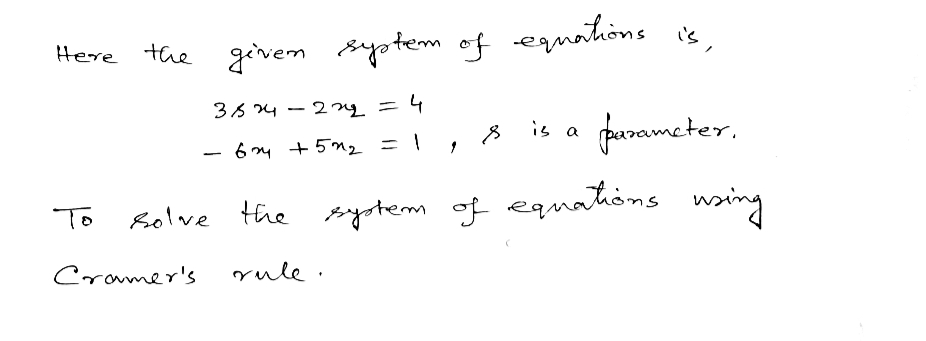 Here the given system of equations is,
3s x₁ − 2x₂ = 4
− 6x₁ + 5x₂ = 1 , s is a parameter.
To solve the system of equations using
Cramer's rule.